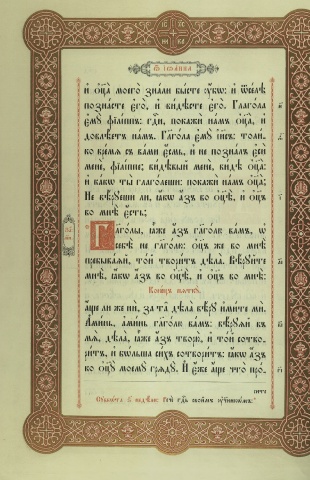 Ѿ іѡанна
и҆ ѻ҆ц҃а̀ моего̀ зна́ли бы́сте ᲂу҆́бѡ: и҆ ѿсе́лѣ
позна́сте є҆го̀, и҆ ви́дѣсте є҆го̀. Глаго́ла
є҆мꙋ̀ фїлі́ппъ: гдⷭ҇и, покажѝ на́мъ ѻ҆ц҃а̀, и҆
довлѣ́етъ на́мъ. Гл҃го́ла є҆мꙋ̀ і҆и҃съ: толи́ко
вре́мѧ съ ва́ми є҆́смь, и҆ не позна́лъ є҆сѝ
менѐ, фїлі́ппе; ви́дѣвый менѐ, ви́дѣ ѻ҆ц҃а̀:
и҆ ка́кѡ ты̀ глаго́леши: покажѝ на́мъ ѻ҆ц҃а̀;
Не вѣ́рꙋеши ли, ꙗ҆́кѡ а҆́зъ во ѻ҆ц҃ѣ̀, и҆ ѻ҆ц҃ъ
во мнѣ̀ є҆́сть;
Гл҃го́лы, ꙗ҆̀же а҆́зъ гл҃го́лю ва́мъ, ѡ҆
себѣ̀ не гл҃го́лю: ѻ҆ц҃ъ же во мнѣ̀
пребыва́ѧй, то́й твори́тъ дѣла̀. Вѣ́рꙋйте
мнѣ̀, ꙗ҆́кѡ а҆́зъ во ѻ҆ц҃ѣ̀, и҆ ѻ҆ц҃ъ во мнѣ̀:
Коне́цъ пѧткꙋ̀.
а҆́ще ли же нѝ, за та̑ дѣла̀ вѣ́рꙋ и҆ми́те мѝ.
А҆ми́нь, а҆ми́нь гл҃го́лю ва́мъ: вѣ́рꙋѧй въ
мѧ̀, дѣла̀, ꙗ҆̀же а҆́зъ творю̀, и҆ то́й сотво-
ри́тъ, и҆ бѡ́льша си́хъ сотвори́тъ: ꙗ҆́кѡ а҆́зъ
ко ѻ҆ц҃ꙋ̀ моемꙋ̀ грѧдꙋ̀. И҆ є҆́же а҆́ще что̀ про-